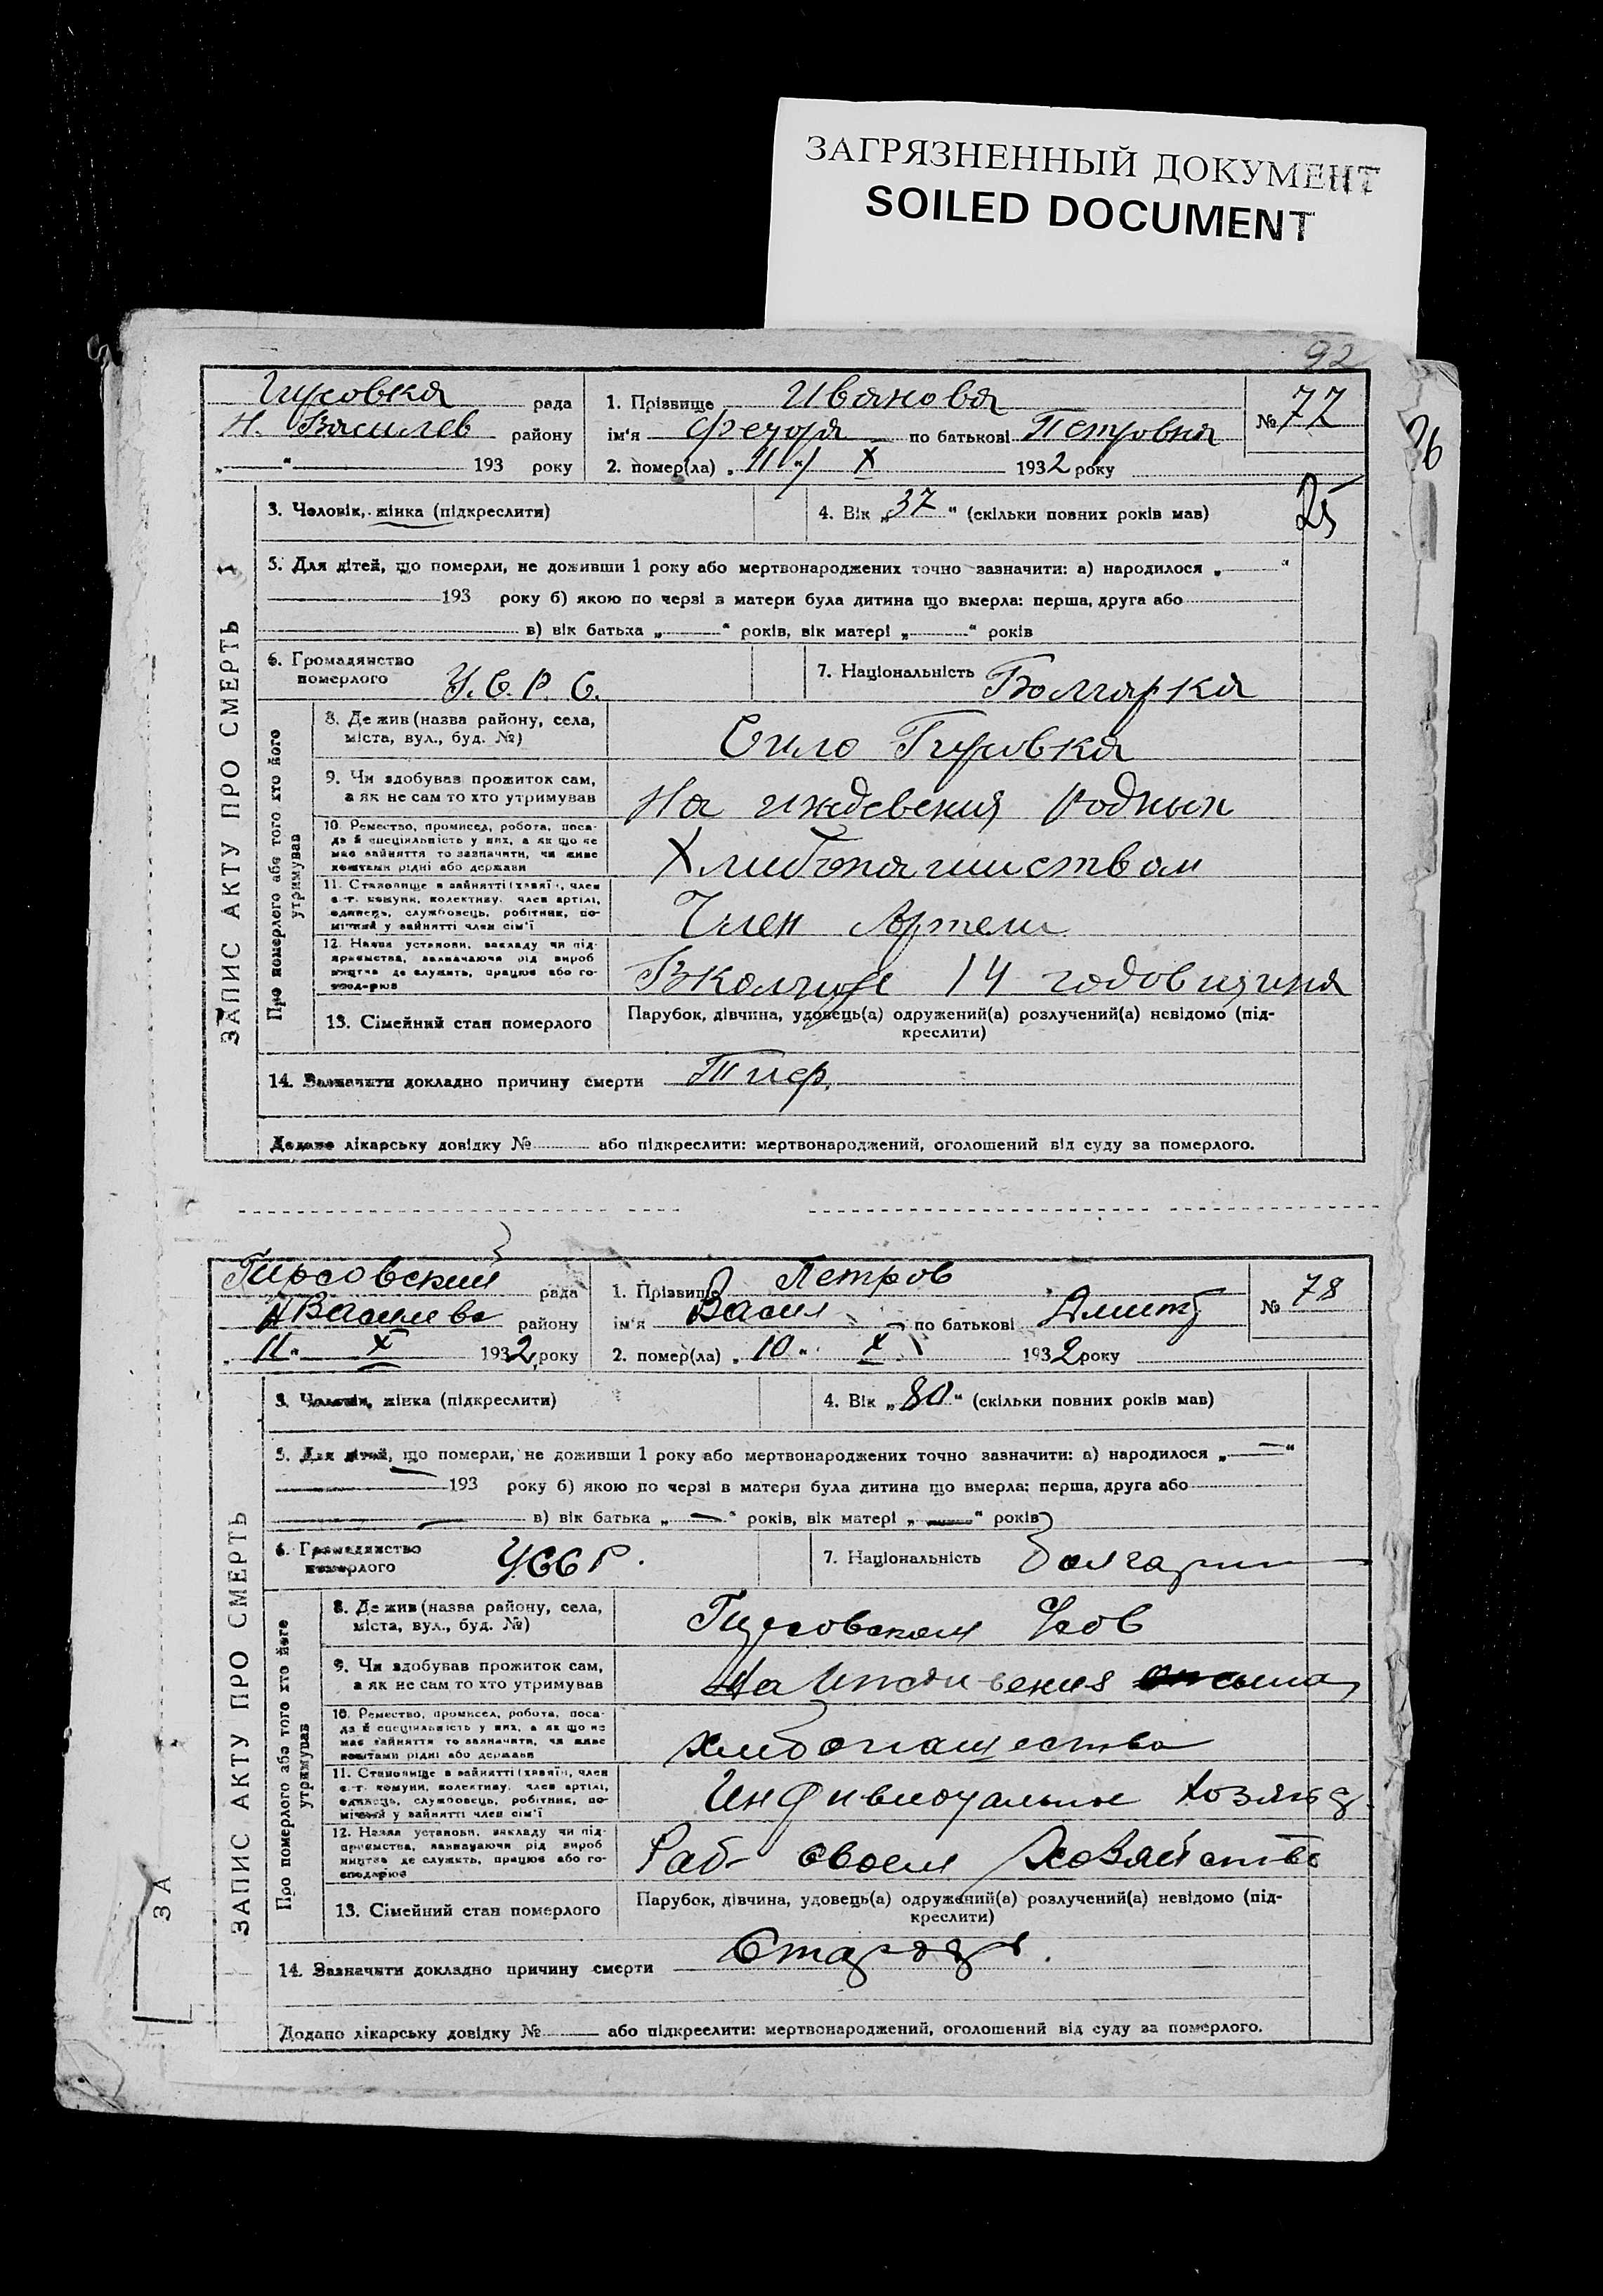 ЗАГРЯЗНЕННЫЙ ДОКУМЕНТ
SOILED DOCUMENT
92
Гирсовка рада
Н. Василев району
„ “ 193 року
1. Прізвище Иванова
ім'я Федора по батькові Петровна
2. помер(ла) „11“ X 1932 року
№ 77
26
3. Чоловік, жінка (підкреслити)
4. Вік „37“ (скільки повних років мав)
25
5. Для дітей, що померли, не доживши 1 року або мертвонароджених точно зазначити: а) народилося „ “
193 року б) якою по черзі в матери була дитина що вмерла: перша, друга або
в) вік батька „ “ років, вік матері „ “ років
6. Громадянство
померлого У.С.Р.С.
7. Національність Болгарка
ЗАПИС АКТУ ПРО СМЕРТЬ
Про померлого або того хто його
утримував
8. Де жив (назва району, села,
міста, вул., буд. №)
Сило Гирсовка
9. Чи здобував прожиток сам,
а як не сам то хто утримував
На иждевения родных
10. Ремество, промисел, робота, поса-
да й спеціяльність у них, а як що не
має зайняття то зазначити, чи живе
коштами рідні або держави
Хлибопашиством
11. Становище в зайнятті (хазяїн, член
с.-г. комуни, колективу, член артілі,
одинець, службовець, робітник, по-
мічний у зайнятті член сім'ї
Член Артели
12. Назва установи, закладу чи під-
приємства, зазначаючи рід вироб
ництва де служить, працює або го-
сподарює
Вколгозе 14 годовщина
13. Сімейний стан померлого
Парубок, дівчина, удовець(а) одружений(а) розлучений(а) невідомо (під-
креслити)
14. Зазначити докладно причину смерти
Додано лікарську довідку № або підкреслити: мертвонароджений, оголошений від суду за померлого.
Гирсовский рада
Н Василева району
„11“ X 1932 року
1. Прізвище Петров
ім'я Васил по батькові Дмитр
2. помер(ла) „10“ X 1932 року
№ 78
3. Чоловік, жінка (підкреслити)
4. Вік „80“ (скільки повних років мав)
5. Для дітей, що померли, не доживши 1 року або мертвонароджених точно зазначити: а) народилося „ “
193 року б) якою по черзі в матери була дитина що вмерла: перша, друга або
в) вік батька „ “ років, вік матері „ “ років
6. Громадянство
померлого УССР.
7. Національність Болгарин
ЗАПИС АКТУ ПРО СМЕРТЬ
Про померлого або того хто його
утримував
ЗА
8. Де жив (назва району, села,
міста, вул., буд. №)
Гирсовском
9. Чи здобував прожиток сам,
а як не сам то хто утримував
На сына
10. Ремество, промисел, робота, поса-
да й спеціяльність у них, а як що не
має зайняття то зазначити, чи живе
коштами рідні або держави
хлибопащества
11. Становище в зайнятті (хазяїн, член
с.-г. комуни, колективу, член артілі,
одинець, службовець, робітник, по-
мічний у зайнятті член сім'ї
12. Назва установи, закладу чи під-
приємства, зазначаючи рід вироб
ництва де служить, працює або го-
сподарює
Раб- своем хозяйство
13. Сімейний стан померлого
Парубок, дівчина, удовець(а) одружений(а) розлучений(а) невідомо (під-
креслити)
14. Зазначити докладно причину смерти
Додано лікарську довідку № або підкреслити: мертвонароджений, оголошений від суду за померлого.